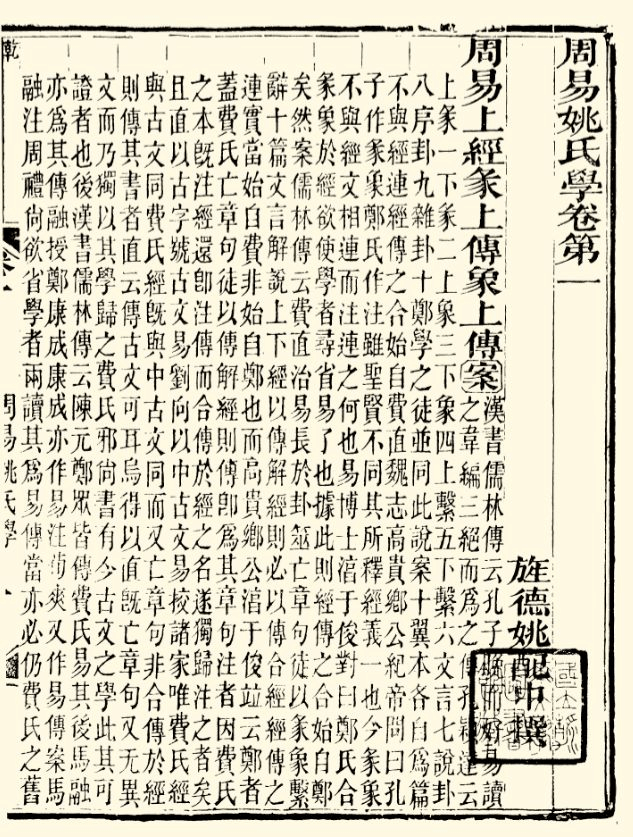 周易姚氏學卷第一
旌德姚配中撰
周易上經彖上傳象上傳案
漢書儒林傳云孔子晚而好易讀
之韋編三絕而爲之傳孔穎達云
上彖一下彖二上象三下象四上繫五下繫六文言七說卦
八序卦九雜卦十鄭學之徒並同此說案十翼本各自爲篇
不與經連經傳之合始自費直魏志高貴鄉公紀帝問曰孔
子作彖象鄭氏作注雖聖賢不同其所釋經義一也今彖象
不與經文相連而注連之何也易博士湻于俊對曰鄭氏合
彖象於經欲使學者尋省易了也據此則經傳之合始自鄭
矣然案儒林傳云費直治易長於卦筮亡章句徒以彖象繫
辭十篇文言解說上下經以傳解經則必以傳合經經傳之
連實當始自費非始自鄭也而高貴鄉公湻于俊竝云鄭者
蓋費氏亡章句徒以傳解經則傳卽爲其章句注者因費氏
之本旣注經還卽注傳而合傳於經之名遂獨歸注之者矣
且直以古字號古文易劉向以中古文易校諸家唯費氏經
與古文同費氏經旣與中古文同而又亡章句非合傳於經
則傳其書者直云傳古文可耳烏得以直旣亡章句又無異
文而乃獨以其學歸之費氏邪尙書有今古文之學此其可
證者也後漢書儒林傳云陳元鄭眾皆傳費氏易其後馬融
亦爲其傳融授鄭康成康成亦作易注荀爽又作易傳案馬
融注周禮尙欲省學者兩讀其爲易傳當亦必仍費氏之舊
乾
周易姚氏學